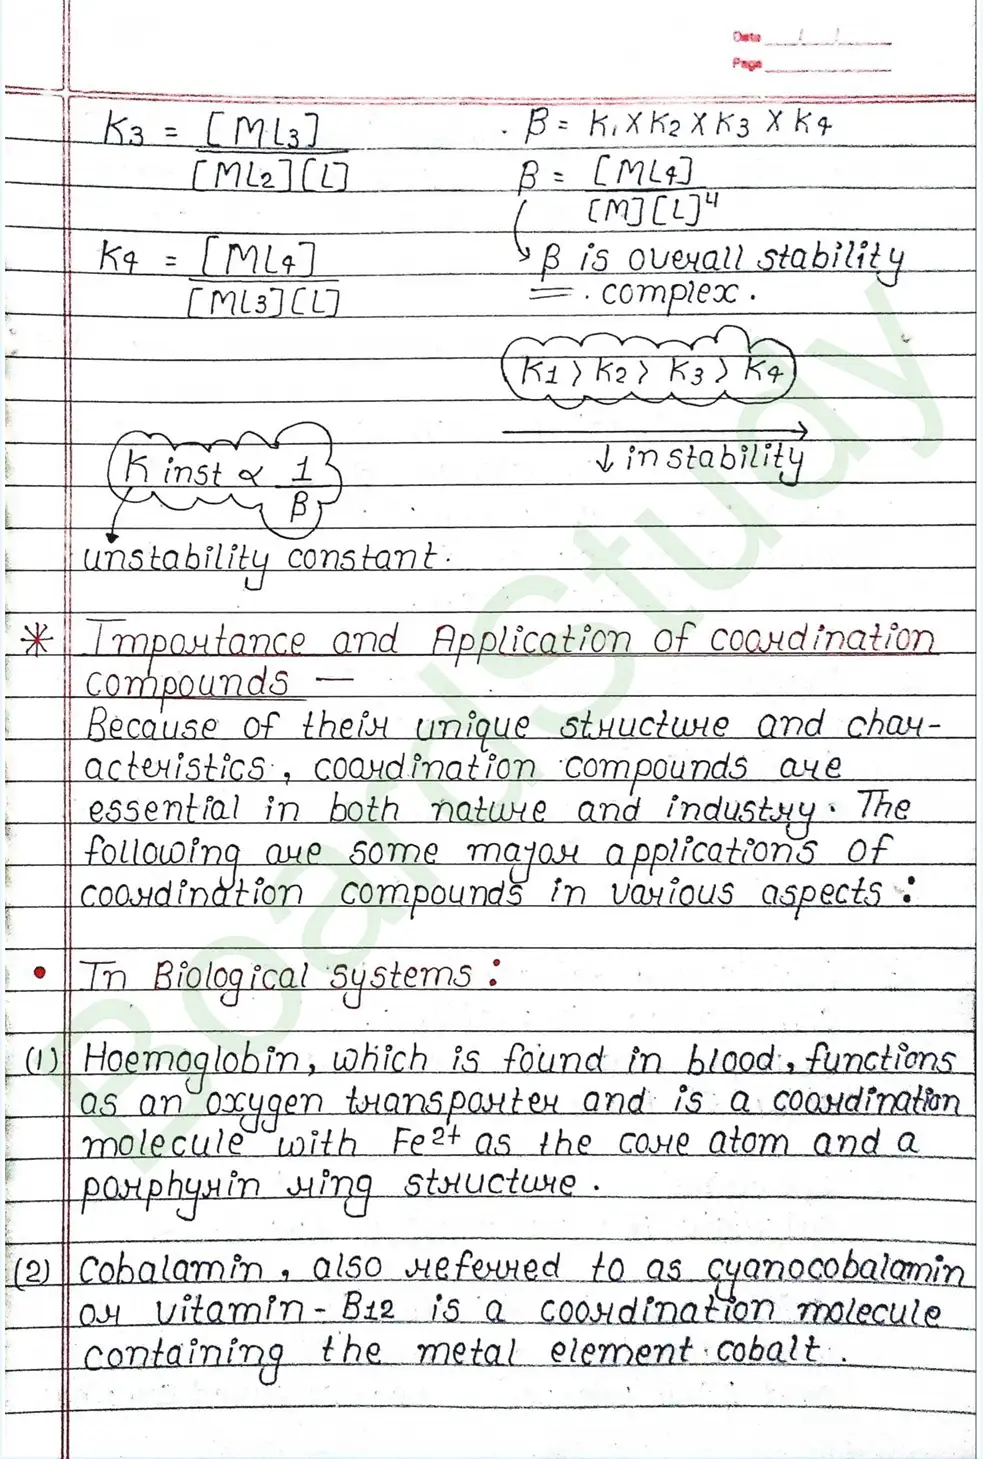 Date
Page
K3 = [ML3]
[ML2][L]
β = K1 X K2 X K3 X K4
β = [ML4]
[M][L]4
K4 = [ML4]
[ML3][L]
β is overall stability
complex.
K1 > K2 > K3 > K4
↓ instability
K inst ∝ 1
β
unstability constant.
* Importance and Application of coordination
compounds —
Because of their unique structure and char-
acteristics, coordination compounds are
essential in both nature and industry. The
following are some major applications of
coordination compounds in various aspects :
• In Biological systems :
(1) Haemoglobin, which is found in blood, functions
as an oxygen transporter and is a coordination
molecule with Fe2+ as the core atom and a
porphyrin ring structure.
(2) Cobalamin, also referred to as cyanocobalamin
or vitamin-B12 is a coordination molecule
containing the metal element cobalt.
BoardStudy